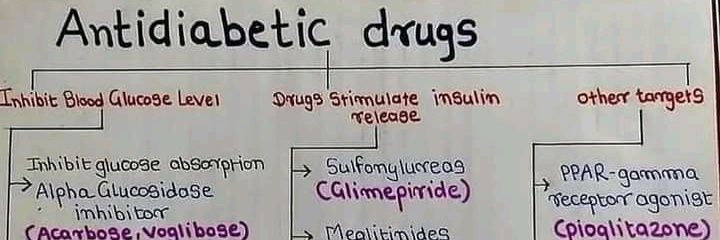 Antidiabetic drugs
Inhibit Blood Glucose Level
Drugs Stimulate insulin
release
other targets
Inhibit glucose absorption
Alpha Glucosidase
inhibitor
(Acarbose, Voglibose)
Sulfonylureas
(Glimepiride)
Meglitinides
PPAR-gamma
receptor agonist
(pioglitazone)